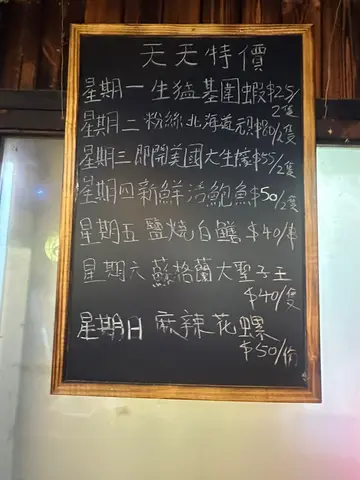 天天特價
星期一 生猛基圍蝦$25/
2隻
星期二 粉絲北海道 $80/2隻
星期三 即開美國大生蠔$55/2隻
星期四 新鮮活鮑魚$50/2隻
星期五 鹽燒白鱔 $40/串
星期六 蘇格蘭大聖子王
$40/隻
星期日 麻辣花螺
$50/份